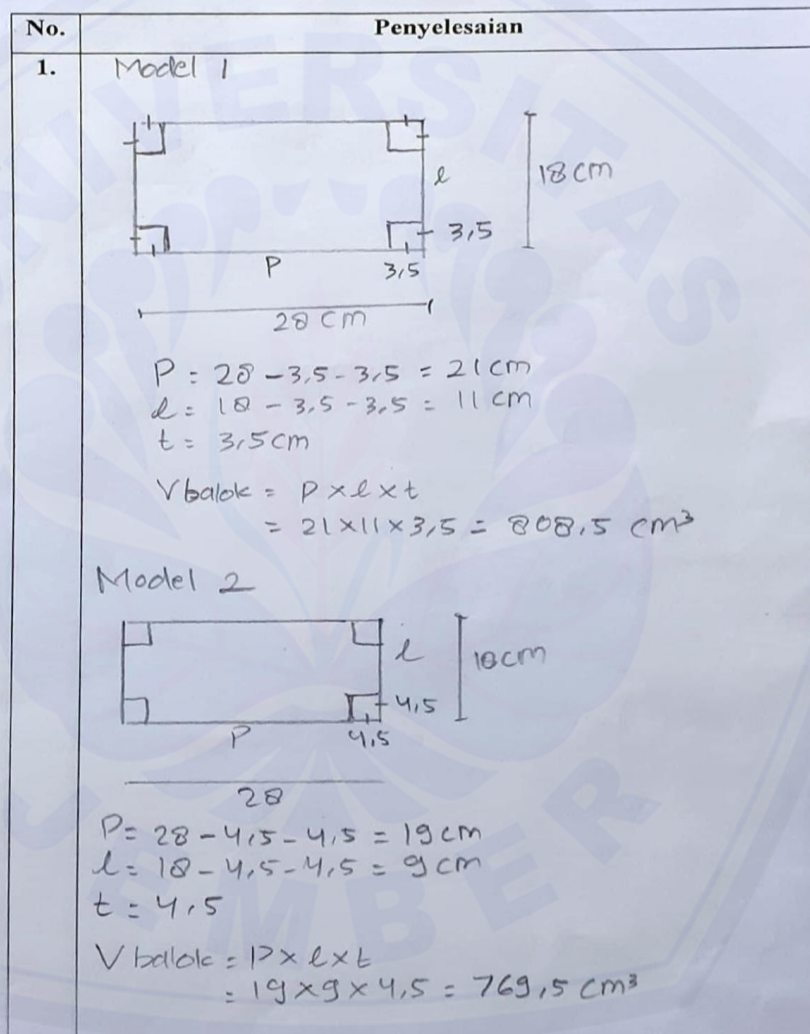 No. Penyelesaian
1. Model 1
l 18 cm
3,5
P 3,5
28 cm
P = 28 - 3,5 - 3,5 = 21 cm
l = 18 - 3,5 - 3,5 = 11 cm
t = 3,5 cm
V balok = P x l x t
= 21 x 11 x 3,5 = 808,5 cm³
Model 2
l 18 cm
4,5
P 4,5
28
P = 28 - 4,5 - 4,5 = 19 cm
l = 18 - 4,5 - 4,5 = 9 cm
t = 4,5
V balok = P x l x t
= 19 x 9 x 4,5 = 769,5 cm³
UNIVERSITAS
JEMBER